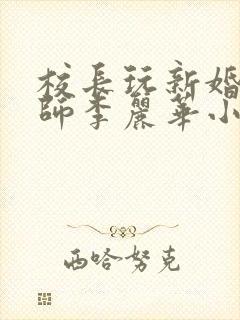 校長玩新婚
師李麗華小
西哈努克